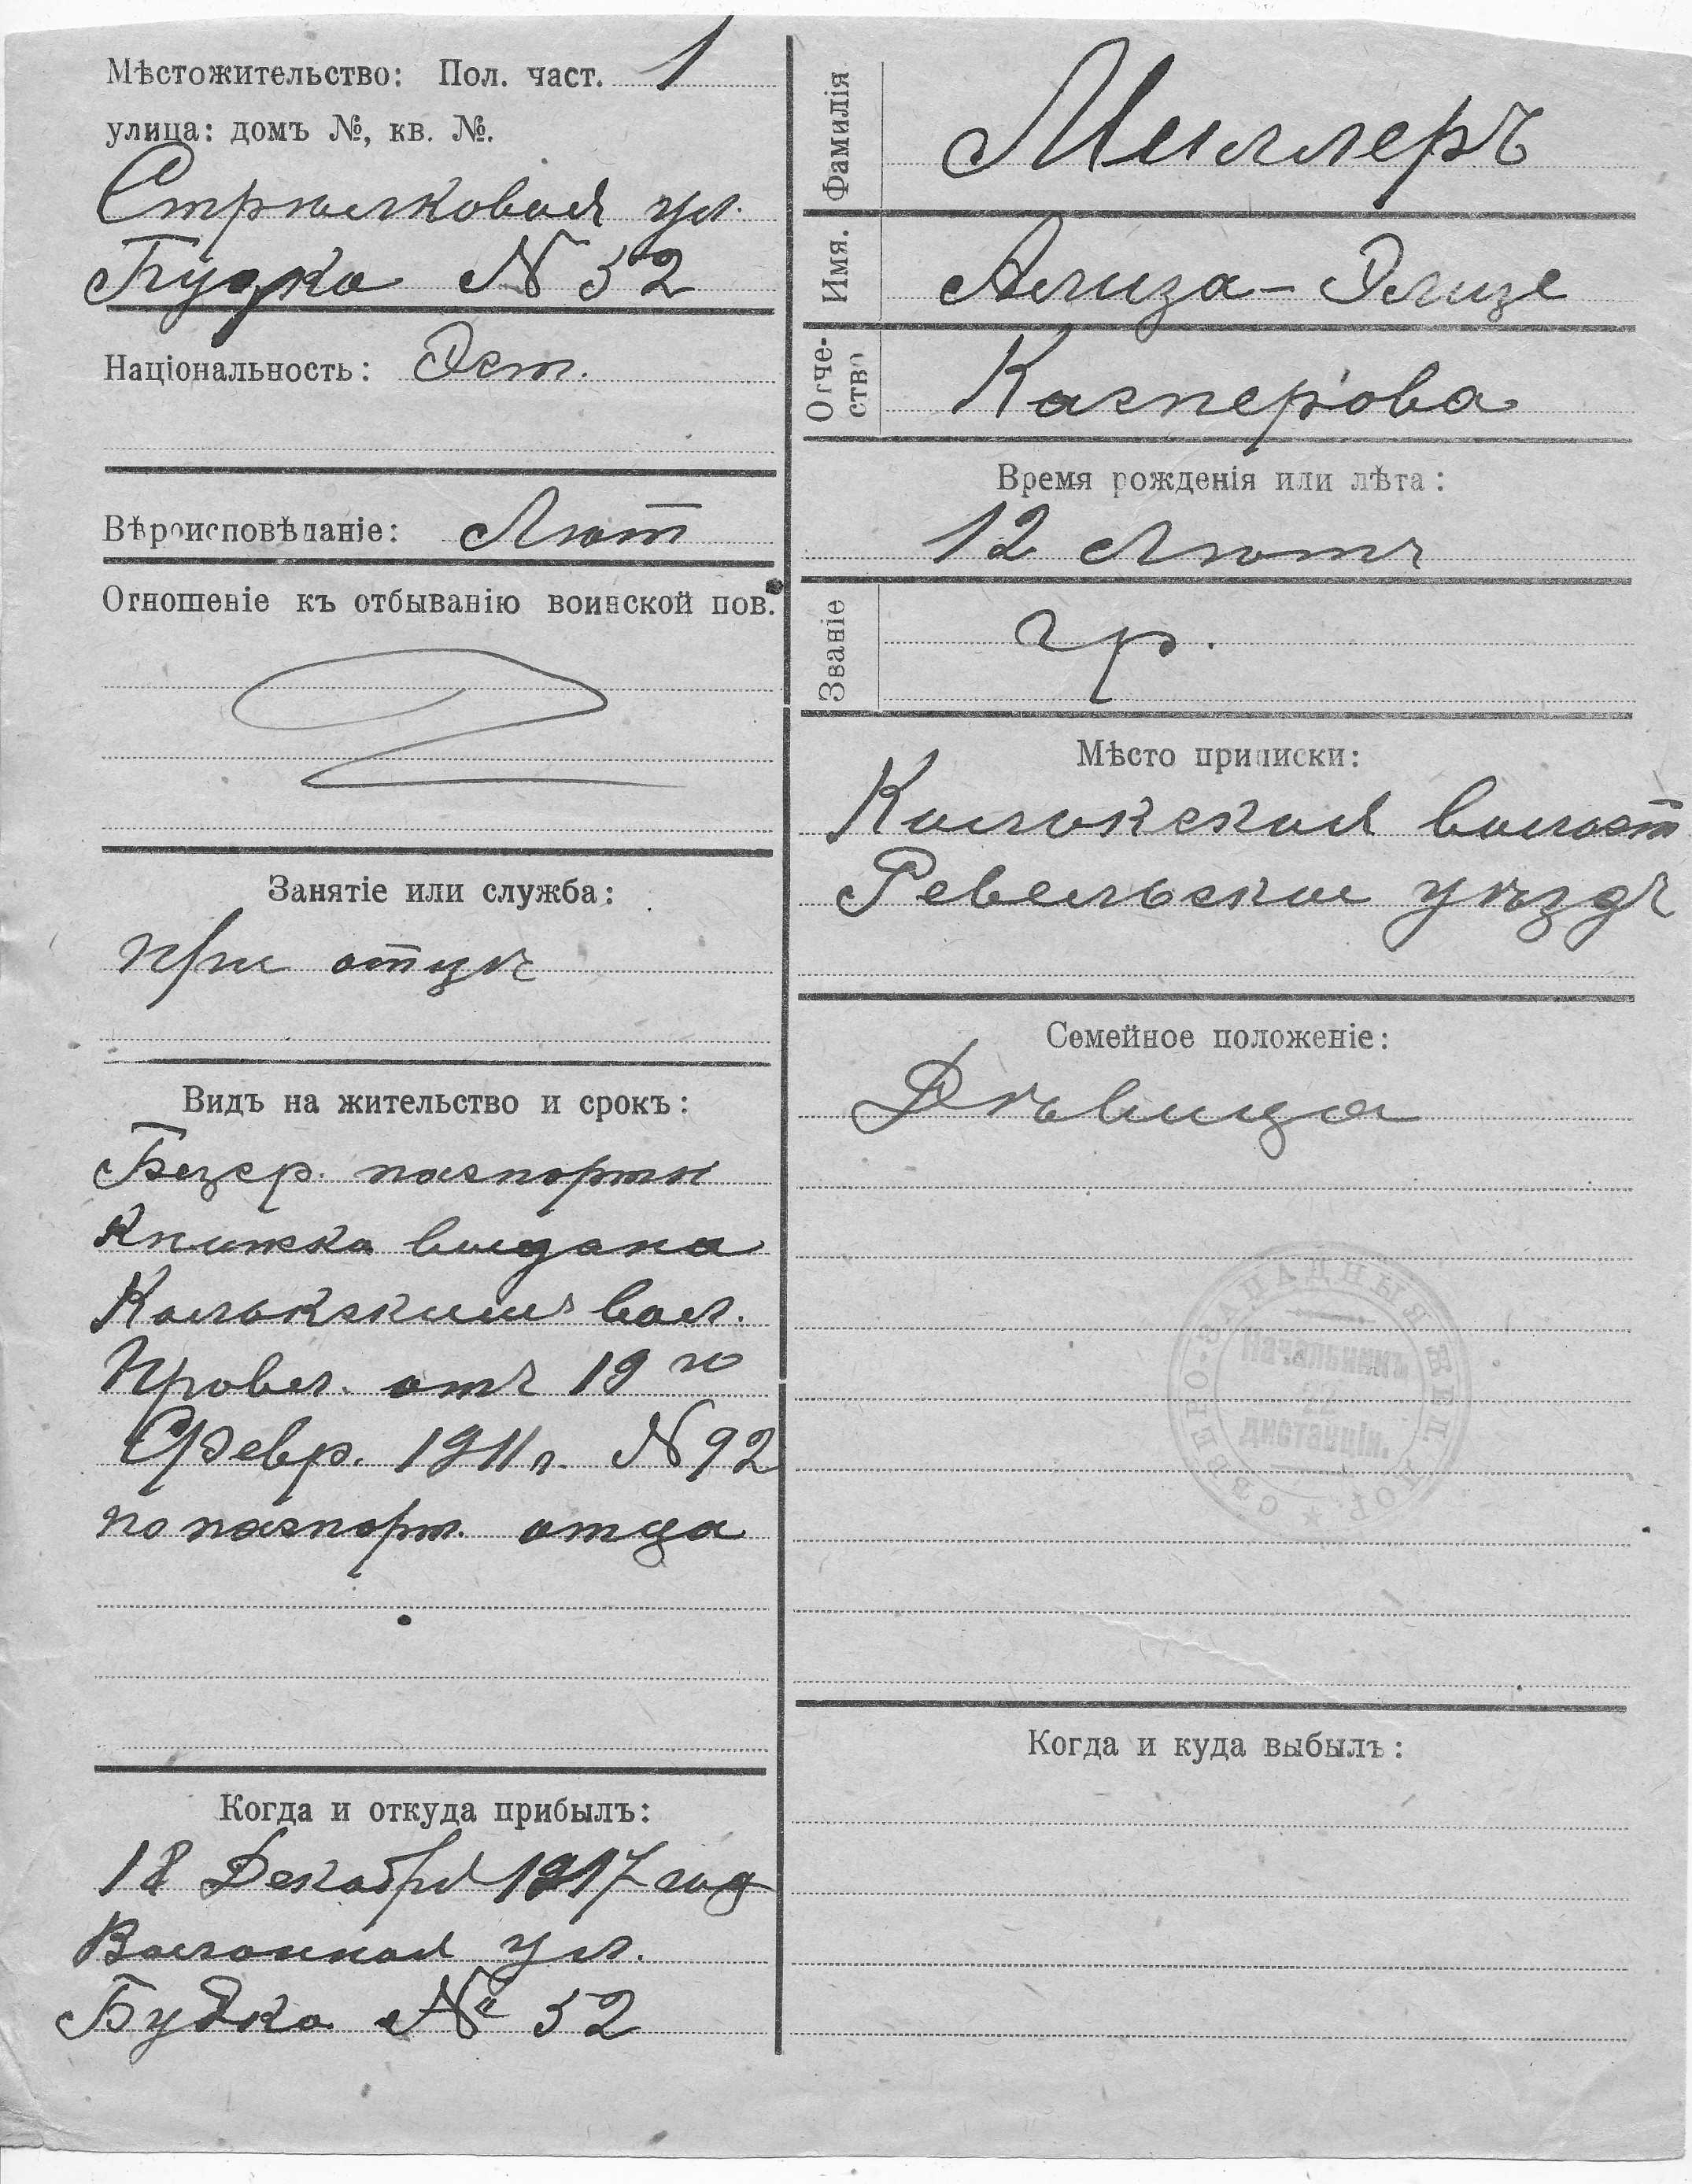 Мѣстожительство: Пол. част. 1
улица: домъ №, кв. №.
Стрѣлковая ул.
Будка N 52
Національность: Эст.
Вѣроисповѣданіе: Лют
Отношеніе къ отбыванію воинской пов.
Занятіе или служба:
при отцѣ
Видъ на жительство и срокъ:
Безср. паспортн
книжка выдана
Колокскимъ вол.
Правл. отъ 19 го
Февр. 1911 г. N 92
по паспорт. отца
Когда и откуда прибылъ:
18 Декабря 1917 год
Вагонная ул.
Будка № 52
Фамилія Миллеръ
Имя. Ализа-Элизе
Отчество Касперова
Время рожденія или лѣта:
12 Лютъ
Званіе гр.
Мѣсто приписки:
Колокская волост
Ревельское уѣздъ
Семейное положеніе:
Дѣвица
СѢВЕРО-ЗАПАДНЫЯ ЖЕЛ. ДОР.
Начальникъ
дистанціи.
Когда и куда выбылъ: